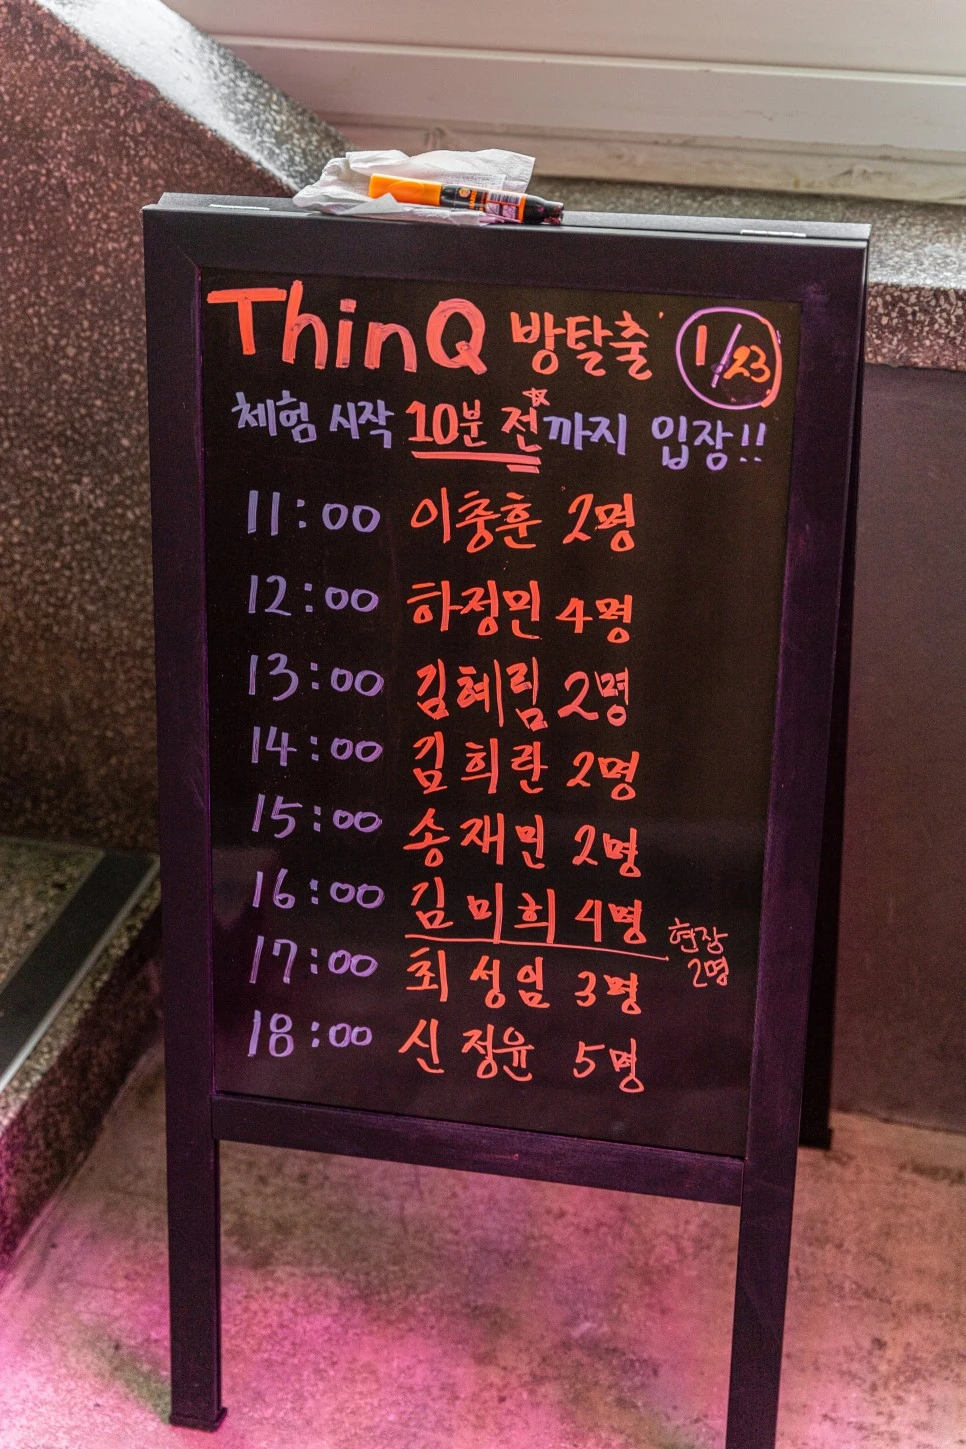 ThinQ 방탈출 1/23
체험 시작 10분 전까지 입장!!
11:00 이충훈 2명
12:00 하정민 4명
13:00 김혜림 2명
14:00 김희란 2명
15:00 송재민 2명
16:00 김미희 4명
현장 2명
17:00 최성임 3명
18:00 신정윤 5명